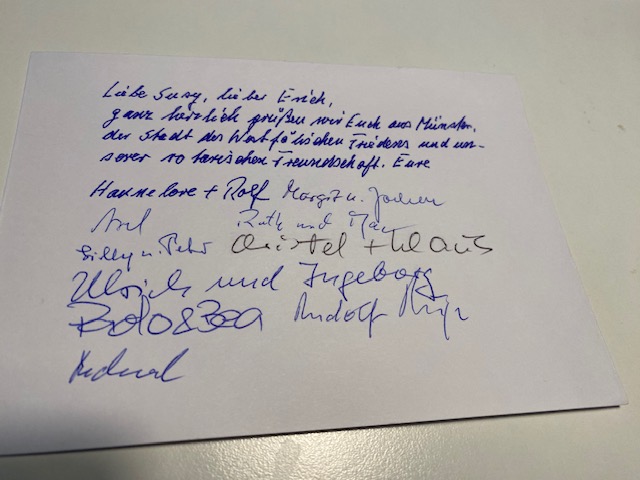 Liebe Susy, lieber Erich,
ganz herzlich grüßen wir Euch aus Münster,
der Stadt des Westfälischen Friedens und un-
serer rotarischen Freundschaft. Eure
Hannelore + Rolf Margit u. Jochen
Axel Ruth und
Silly u. Peter Christel + Klaus
Ulrich und Ingeborg
Bolo & Bea Rudolf